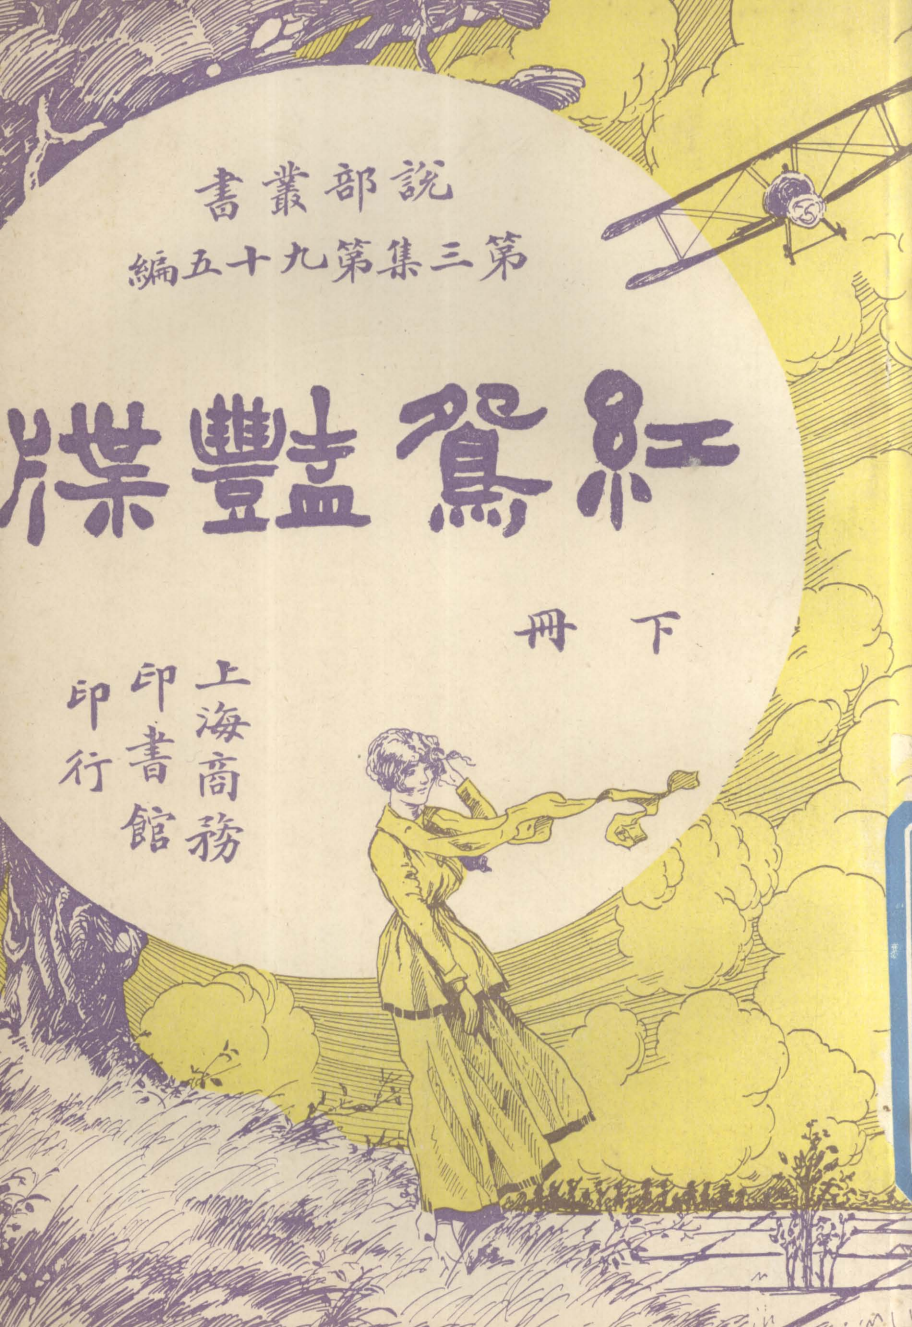 說部叢書
第三集第九十五編
紅鴛豔牒
下冊
上海商務
印書館
印行